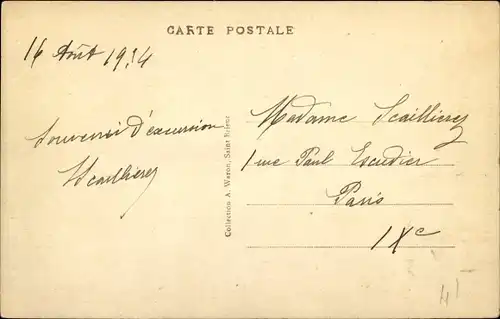 CARTE POSTALE
16 Août 1934
Souvenir d'excursion
Scaillierez
Collection A. Waron, Saint-Brieuc
Madame Scaillierez
1 rue Paul Escudier
Paris
IXe